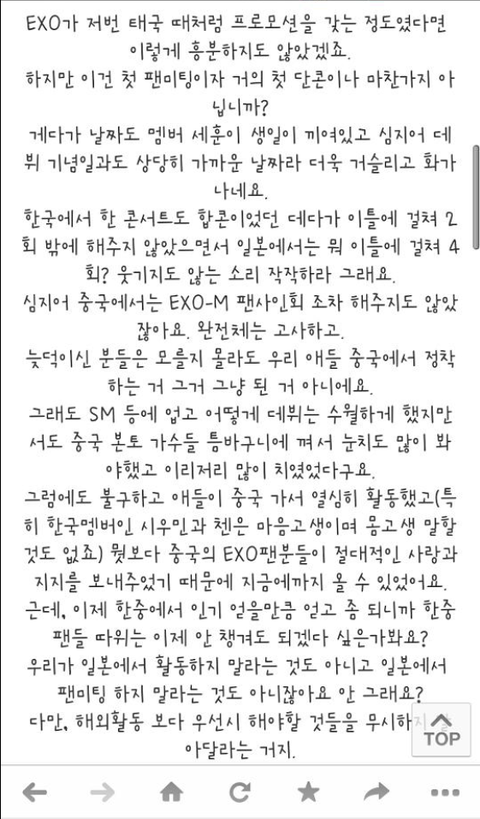 EXO가 저번 태국 때처럼 프로모션을 갖는 정도였다면
이렇게 흥분하지도 않았겠죠.
하지만 이건 첫 팬미팅이자 거의 첫 단콘이나 마찬가지 아
닙니까?
게다가 날짜도 멤버 세훈이 생일이 끼여있고 심지어 데
뷔 기념일과도 상당히 가까운 날짜라 더욱 거슬리고 화가
나네요.
한국에서 한 콘서트도 합콘이었던 데다가 이틀에 걸쳐 2
회 밖에 해주지 않았으면서 일본에서는 뭐 이틀에 걸쳐 4
회? 웃기지도 않는 소리 작작하라 그래요.
심지어 중국에서는 EXO-M 팬사인회 조차 해주지도 않았
잖아요. 완전체는 고사하고.
늦덕이신 분들은 모를지 몰라도 우리 애들 중국에서 정착
하는 거 그거 그냥 된 거 아니에요.
그래도 SM 등에 업고 어떻게 데뷔는 수월하게 했지만
서도 중국 본토 가수들 틈바구니에 껴서 눈치도 많이 봐
야했고 이리저리 많이 치였었다구요.
그럼에도 불구하고 애들이 중국 가서 열심히 활동했고(특
히 한국멤버인 시우민과 첸은 마음고생이며 몸고생 말할
것도 없죠) 뭣보다 중국의 EXO팬분들이 절대적인 사랑과
지지를 보내주었기 때문에 지금에까지 올 수 있었어요.
근데, 이제 한중에서 인기 얻을만큼 얻고 좀 되니까 한중
팬들 따위는 이제 안 챙겨도 되겠다 싶은가봐요?
우리가 일본에서 활동하지 말라는 것도 아니고 일본에서
팬미팅 하지 말라는 것도 아니잖아요 안 그래요?
다만, 해외활동 보다 우선시 해야할 것들을 무시하지
아달라는 거지.
TOP